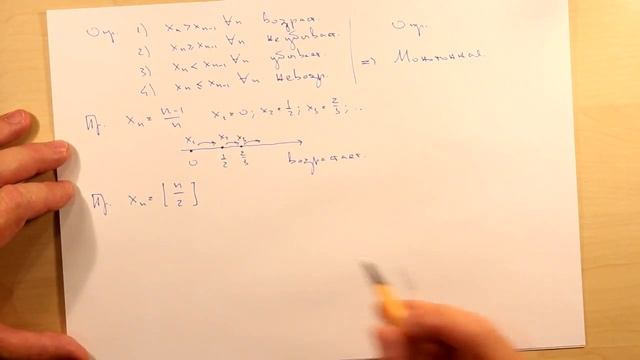 Опр. 1) xₙ > xₙ₋₁ ∀n возраст. Опр.
2) xₙ ≥ xₙ₋₁ ∀n неубывает.
3) xₙ < xₙ₋₁ ∀n убывает.
4) xₙ ≤ xₙ₋₁ ∀n невозр. ⇒ Монотонная.
Пр. xₙ = (n-1)/n x₁ = 0; x₂ = 1/2; x₃ = 2/3; ...
x₁ x₂ x₃
0 1/2 2/3 возрастает.
Пр. xₙ = [n/2]